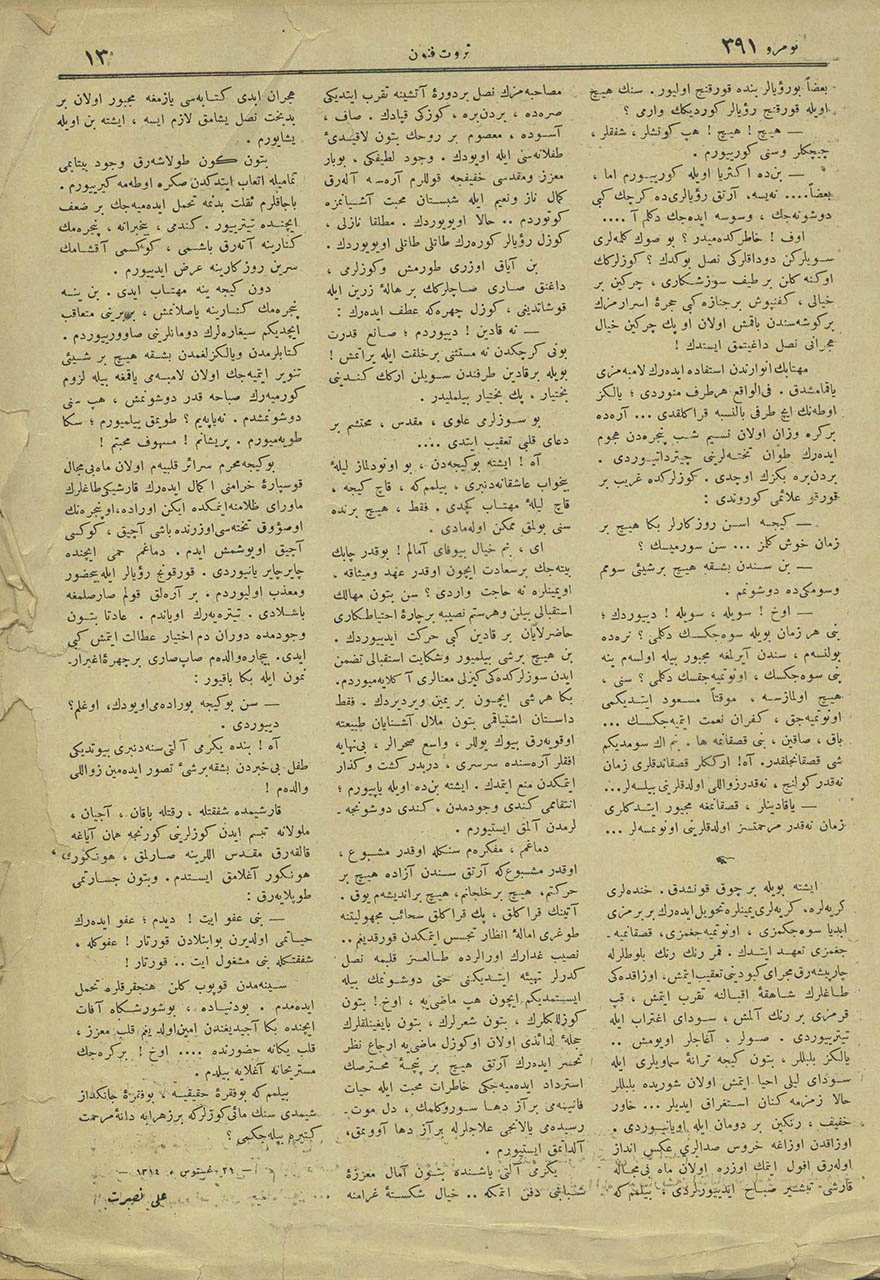 نومرو ٣٩١
ثروت فنون
١٣
بعضاً بورؤيالر بنده قورقنج اوليور . سنك هيچ
اويله قورقنج رؤيالر كورديكك وارمى ؟
— هيچ ! هيچ ! هپ كونشلر ، شفقلر ،
چيچكلر وسنى كورييورم .
— بن‌ده اكثريا اويله كورييورم اما ،
بعضاً.... نه‌يسه، آرتق رؤيالرى‌ده كرچك كبى
دوشونه‌جك ، وسوسه ايده‌جك دكلم آ ....
اوف ! خاطركده‌ميدر ؟ بو صوك كله‌لرى
سويلركن دوداقلركى نصل بوكدك ؟ كوزلركك
اوكنه كلن بر طيف سوزشكارى ، چركين بر
خيالى ، كفنپوش برجنازه كبى حجرۀ اسرارمزك
بركوشه‌سندن باقمش اولان او پك چركين خيال
هجرانى نصل داغيتمق ايستدك !
مهتابك انوارندن استفاده ايده‌رك لامبه‌مزى
ياقمامشدق . فى‌الواقع هرطرف منوردى ؛ يالكز
اوطه‌نك ايچ طرفى بالنسبه قراكلقدى ... آره‌ده
بركره وزان اولان نسيم شب پنجره‌دن هجوم
ايده‌رك طوان تخته‌لرينى چيتردأتيوردى .
بردن‌بره بكزك اوچدى . كوزلركده غريب بر
قورقو علائمى كوروندى :
— كيجه اسن روزكارلر بكا هيچ بر
زمان خوش كلمز ... سن سورميسك ؟
— بن سندن بشقه هيچ برشيئى سومم
وسومكى‌ده دوشونمم .
— اوخ ! سويله ، سويله ! دييوردك ؛
بنى هر زمان بويله سوه‌جكسك دكلمى ؟ نره‌ده
بولنسه‌م ، سندن آيرلمغه مجبور بيله اولسه‌م ينه
بنى سوه‌جكسك ، اونوتميه‌جقسك دكلمى ؟ سنى ،
هيچ اولمازسه ، موقتاً مسعود ايتديكمى
اونوتميه‌جق ، كفران نعمت ايتميه‌جكسك ...
باق ، صاقين ، بنى قصقانمه ها . بنم اك سومديكم
شى قصقانجلقدر. آه! ارككلر قصقاندقلرى زمان
نه‌قدر كولنج ، نه‌قدرزواللى اولدقلرينى بيلسه‌لر...
— ياقادينلر ، قصقانمغه مجبور ايتدكلرى
زمان نه‌قدر مرحمتسز اولدقلرينى اونوتمسه‌لر ...
ايشته بويله بر چوق قونشدق . خنده‌لرى
كريه‌لره، كريه‌لرى يمينلره تحويل ايده‌رك بر برمزى
ابديا سوه‌جكمزى ، اونوتميه‌جغمزى، قصقانميه-
جغمزى تعهد ايتدك . قمر رنك رنك بلوطلرله
چارپيشه‌رق مجراى كبودينى تعقيب ايتمش، اوزاقده‌كى
طاغلرك شاهقۀ اقبالنه تقرب ايتمش ، قپ
قرمزى بر رنك آلمش ، سوداى اغتراب ايله
تيتريوردى . صولر ، آغاجلر اويومش ..
يالكز بلبللر ، بتون كيجه ترانۀ سماويلرى ايله
سوداى ليلى احيا ايتمش اولان شوريده بلبللر
حالا زمزمه كنان استغراق ايديلر ... خاور
خفيف ، رنكين بر دومان ايله اويانيوردى .
اوزاقدن اوزاغه خروس صدالرى عكس انداز
اوله‌رق افول ايتمك اوزره اولان ماه بى‌مجاله
قارشى تبشير صباح ايدييورلردى ، بيلمم‌كه
مصاحبه‌مزك نصل بردورۀ آتشينه تقرب ايتديكى
صره‌ده ، بردن‌بره ، كوزكى قپادك . صاف ،
آسوده ، معصوم بر روحك بتون لاقيدئ
طفلانه‌سنى ايله اويودك . وجود لطيفكى ، بوبار
معزز ومقدسى خفيفجه قوللرم آره‌سنه آله‌رق
كمال ناز ونعيم ايله شبستان محبت آشيانمزه
كوتوردم .. حالا اويويوردك . مطلقا نازلى ،
كوزل رؤيالر كوره‌رك طاتلى طاتلى اويويوردك.
بن آياق اوزرى طورمش وكوزلرمى ،
داغنق صارى صاچلركك بر هالۀ زرين ايله
قوشاتدينى ، كوزل چهره‌كه عطف ايده‌رك :
— نه قادين ! دييوردم ؛ صانع قدرت
بونى كرچكدن نه مستثنى برخلقت ايله يراتمش !
بويله برقادين طرفندن سويلن ارك‌ك كندينى
بختيار ، پك بختيار بيلمليدر.
بو سوزلرمى علوى ، مقدس ، محتشم بر
دعاى قلبى تعقيب ايتدى ....
آه ! ايشته بوكيجه‌دن ، بو اونودلماز ليلۀ
بيخواب عاشقانه‌دنبرى ، بيلمم‌كه ، قاچ كيجه ،
قاچ ليلۀ مهتاب كچدى . فقط ، هيچ برنده
سنى بولمق ممكن اوله‌مادى .
اى ، بنم خيال بيوفاى آمالم ! بوقدر چابك
بيته‌جك برسعادت ايچون اوقدر عهد وميثاقه ،
اويمينلره نه حاجت واردى ؟ سن بتون مهالك
استقبالى بيلن وهرستم نصيبه برچارۀ احتياطكارى
حاضرلايان بر قادين كبى حركت ايدييوردك .
بن هيچ برشى بيلميور وشكايت استقبالى تضمن
ايدن سوزلركده‌كى كيزلى معنالرى آكلايه‌ميوردم.
بكا هرشى ايچون بر يمين ويرديردك . فقط
داستان اشتياقى بتون ملال آشنايان طبيعته
اوقويه‌رق بيوك يوللر ، واسع صحرالر ، بى‌نهايه
افقلر آره‌سنده سرسرى ، دربدر كشت وكذار
ايتمكدن منع ايتمدك . ايشته بن‌ده اويله ياپيورم ؛
انتقامى كندى وجودمدن ، كندى دوشونجه-
لرمدن آلمق ايستيورم .
دماغم ، مفكره‌م سنكله اوقدر مشبوع ،
اوقدر مشبوع‌كه آرتق سندن آزاده هيچ بر
حركتم، هيچ برخلجانم، هيچ برانديشه‌م يوق .
آتينك قراكلق ، پك قراكلق سحائب مجهوليتنه
طوغرى امالۀ انظار تجسس ايتمكدن قورقدينم ..
نصيب غدارك اورالرده طالعسز قلبمه نصل
كدرلر تهيئه ايتديكنى حتى دوشونمك بيله
ايستمديكم ايچون هپ ماضى‌يه ، اوخ ! بتون
كوزللكلرك ، بتون شعرلرك ، بتون بايغينلقلرك
جملۀ لدائدى اولان اوكوزل ماضى‌يه ارجاع نظر
تحسر ايده‌رك آرتق هيچ بر پنجۀ محترصك
استرداد ايده‌ميه‌جكى خاطرات محبت ايله حيات
فانيه‌مى برآز دها سوروكلمك ، دل موت-
رسيده‌مى يالانجى علاجلرله برآز دها آوونمق،
آلداتمق ايستيورم .
يكرمى آلتى ياشنده بتون آمال معززۀ
شبابنى دفن ايتمكه .. خيال شكستۀ غرامنه
هجران ابدى كتابه‌سى يازمغه مجبور اولان بر
بدبخت نصل يشامق لازم ايسه ، ايشته بن اويله
يشايورم .
بتون كون طولاشه‌رق وجود بيتابمى
تماميله اتعاب ايتدكدن صكره اوطه‌مه كيرييورم .
باجاقلرم ثقلت بدنمه تحمل ايده‌ميه‌جك بر ضعف
ايچنده تيتريور . كندمى ، بيخبرانه ، پنجره‌مك
كنارينه آته‌رق باشمى ، كوكسمى آقشامك
سرين روزكارينه عرض ايدييورم .
دون كيجه ينه مهتاب ايدى . بن ينه
پنجره‌مك كنارينه ياصلانمش ، بربرينى متعاقب
ايچديكم سيغاره‌لرك دومانلرينى صاوورييوردم .
كتابلرمدن ويالكزلغمدن بشقه هيچ بر شيئى
تنوير ايتميه‌جك اولان لامبه‌مى ياقمغه بيله لزوم
كورميه‌رك صباحه قدر دوشونمش ، هپ سنى
دوشونمشدم . نه‌ياپه‌يم ؟ طويمق بيلميورم ؛ سكا
طويه‌ميورم . پريشانم ! مسهوف محبتم !
بوكيجه محرم سرائر قلبيه‌م اولان ماه بى‌مجال
قوسپارۀ خرامنى اكمال ايده‌رك قارشيكى طاغلرك
ماوراى ظلامنه اينمكده ايكن اوراده، اوپنجره‌نك
اوصوؤق تخته‌سى اوزرنده باشى آچيق ، كوكسى
آچيق اويوشمش ايدم . دماغم حمى ايچنده
چاير چاير يانيوردى . قورقونج رؤيالر ايله بيحضور
ومعذب اوليوردم . بر آره‌لق قولم صارصلمغه
باشلادى . تيتره‌يه‌رك اوياندم . عادتا بتون
وجودمده دوران دم اختيار عطالت ايتمش كبى
ايدى. بيچاره والده‌م صاپ صارى برچهرۀ اغبرار-
نمون ايله بكا باقيور :
— سن بوكيجه بوراده‌مى اويودك، اوغلم؟
دييوردى .
آه ! بنده يكرمى آلتى سنه‌دنبرى بيوتديكى
طفل بى‌خبردن بشقه برشئ تصور ايده‌مين زواللى
والده‌م !
قارشيمده شفقتله ، رقتله باقان ، آجيان ،
ملولانه تبسم ايدن كوزلرينى كورنجه همان آياغه
قالقه‌رق مقدس اللرينه صارلمق ، هونكور
هونكور آغلامق ايستدم . وبتون جسارتمى
طوپلايه‌رق :
— بنى عفو ايت ! ديدم ؛ عفو ايده‌رك
حياتمى اولديرن بوابتلادن قورتار ! عفوكله ،
شفقتكله بنى مشغول ايت .. قورتار !
سينه‌مدن قوپوب كلن هنجقرقلره تحمل
ايده‌مدم . بودنياده ، بوشورشكاه آفات
ايچنده بكا آجيديغندن امين اولديغم قلب معزز ،
قلب يكانه حضورنده .... اوخ ! بركره‌جك
مستريحانه آغلايه بيلدم .
بيلمم‌كه بوفقرۀ حقيقيه ، بوفقرۀ جانكداز
شيمدى سنك مائى كوزلركه برزهرابه دانۀ مرحمت
كتيره بيله‌جكمى ؟
— ٢١ اغستوس ، ١٣١٤ —
على نصرت